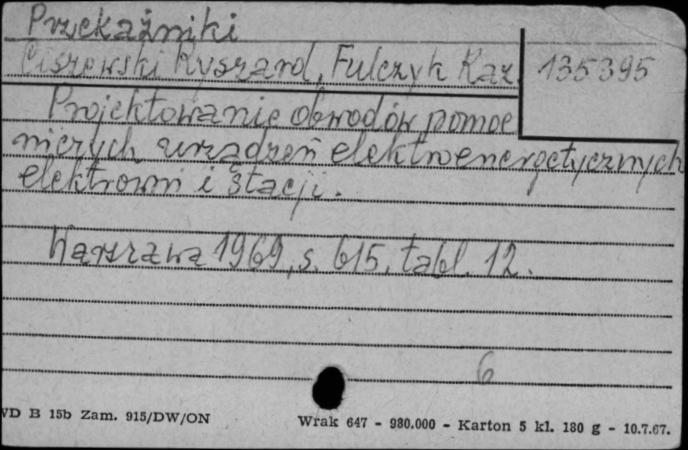 Przekaźniki
Ciszewski Ryszard, Fulczyk Kaz.
135395
Projektowanie obwodów pomoc
niczych urządzeń elektroenergetycznych
elektrowni i stacji.
Warszawa 1969, s. 615, tabl. 12.
6
WD B 15b Zam. 915/DW/ON
Wrak 647 - 980.000 - Karton 5 kl. 180 g - 10.7.67.